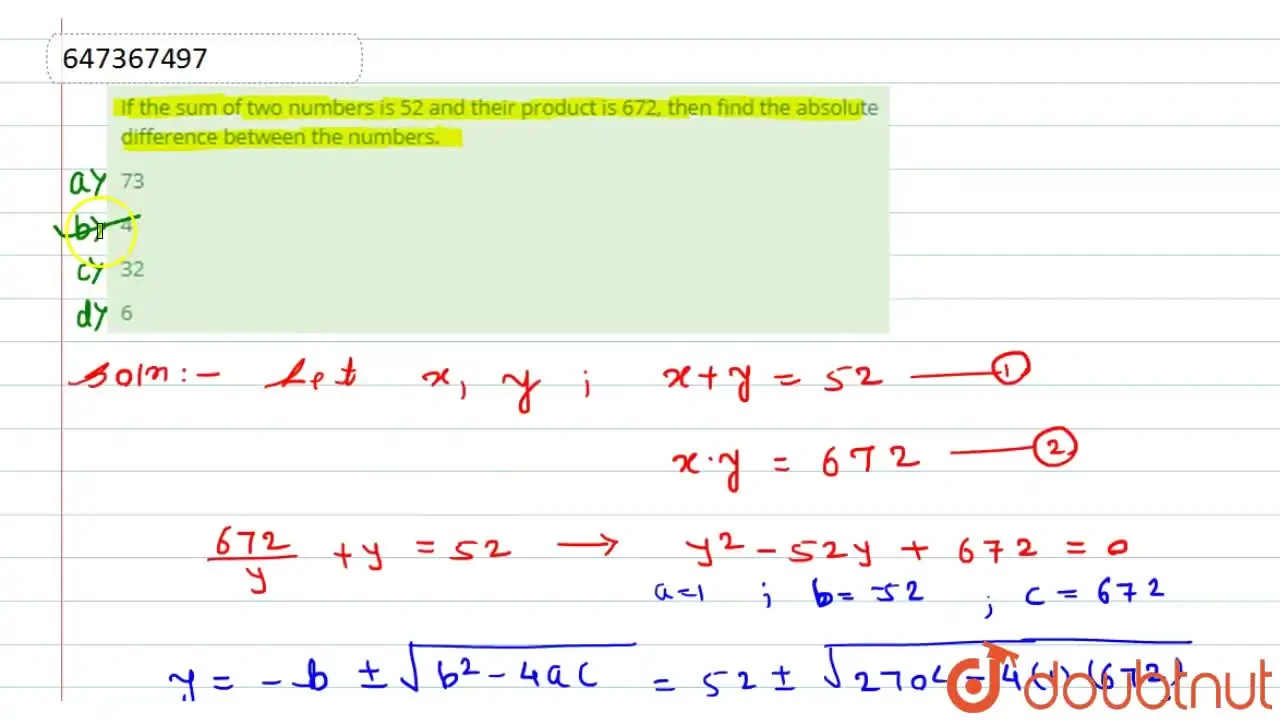 647367497
If the sum of two numbers is 52 and their product is 672, then find the absolute
difference between the numbers.
a) 73
b) 4
c) 32
d) 6
Soln:- Let x, y ; x+y = 52 — ①
x·y = 672 — ②
672/y + y = 52 → y² - 52y + 672 = 0
a=1 ; b= -52 ; c = 672
y = -b ± √b² - 4ac = 52 ± √2704 - 4(1)(672)
doubtnut